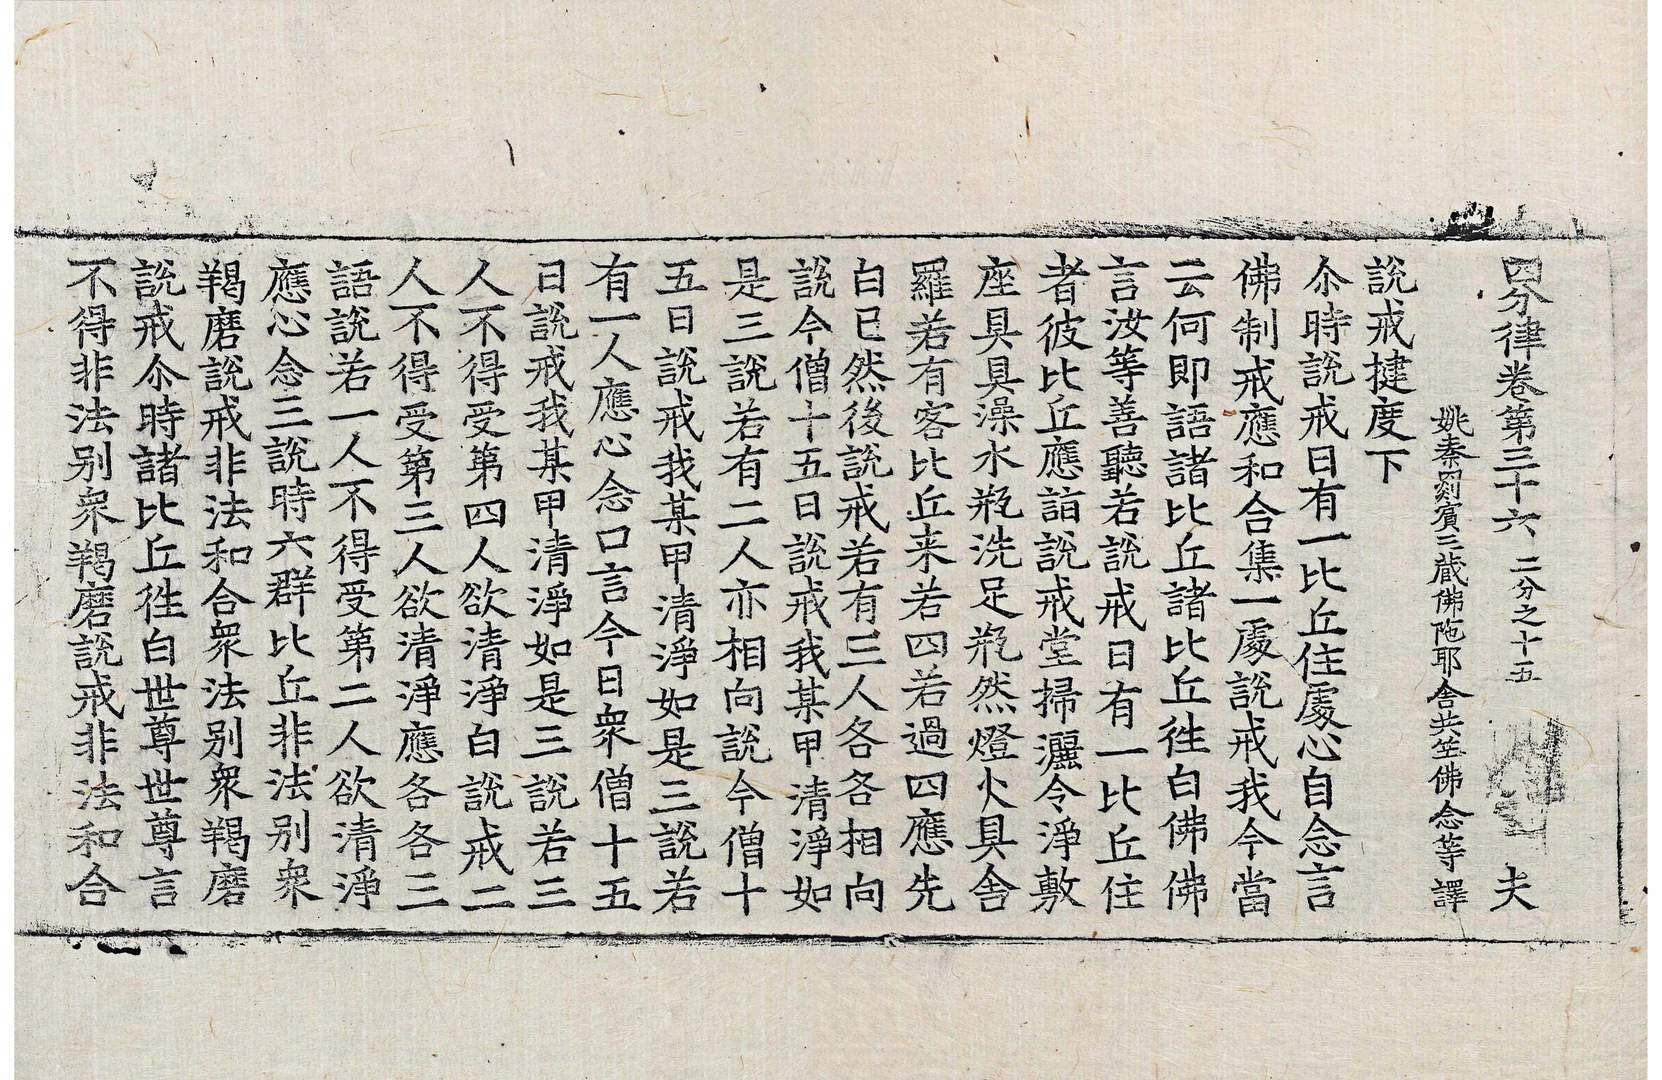 四分律卷第三十六 二分之十五 夫
姚秦罽賓三藏佛陁耶舍共竺佛念等譯
說戒揵度下
尒時說戒日有一比丘住處心自念言
佛制戒應和合集一處說戒我今當
云何即語諸比丘諸比丘徃白佛佛
言汝等善聽若說戒日有一比丘住
者彼比丘應詣說戒堂掃灑令淨敷
座具具澡水瓶洗足瓶然燈火具舍
羅若有客比丘来若四若過四應先
白已然後說戒若有三人各各相向
說今僧十五日說戒我某甲清淨如
是三說若有二人亦相向說今僧十
五日說戒我某甲清淨如是三說若
有一人應心念口言今日衆僧十五
日說戒我某甲清淨如是三說若三
人不得受第四人欲清淨白說戒二
人不得受第三人欲清淨應各各三
語說若一人不得受第二人欲清淨
應心念三說時六群比丘非法別衆
羯磨說戒非法和合衆法別衆羯磨
說戒尒時諸比丘徃白世尊世尊言
不得非法別衆羯磨說戒非法和合